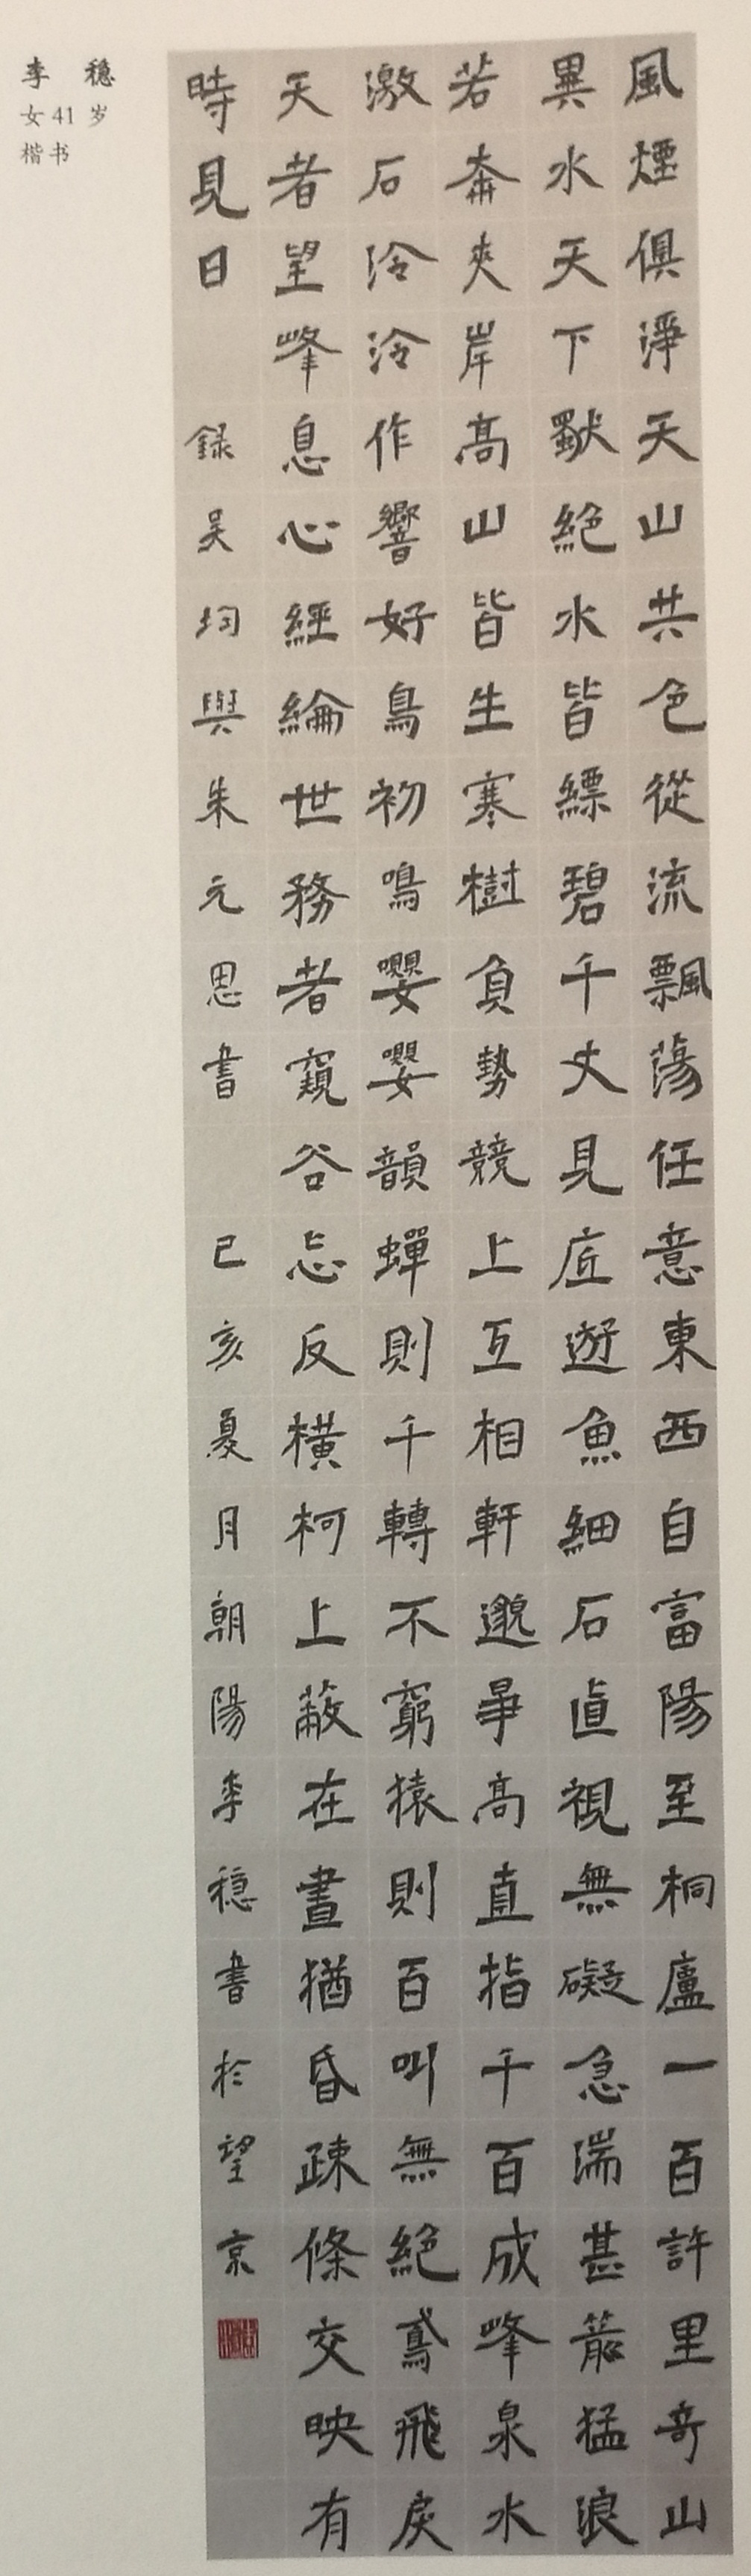 李 穏
女 41 岁
楷书
風煙俱淨天山共色從流飄蕩任意東西自富陽至桐廬一百許里奇山
異水天下獸絕水皆縹碧千丈見底遊魚細石直視無礙急湍甚箭猛浪
若奔夾岸高山皆生寒樹負勢競上互相軒邈爭高直指千百成峰泉水
激石泠泠作響好鳥初鳴嚶嚶韻蟬則千轉不窮猿則百叫無絕鳶飛戾
天者望峰息心經綸世務者窺谷忘反橫柯上蔽在晝猶昏疎條交映有
時見日
錄吴均與朱元思書
己亥夏月朝陽李穏書於望京